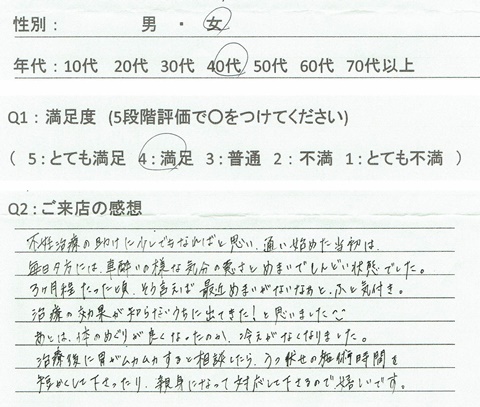 性別： 男 ・ 女
年代：10代 20代 30代 40代 50代 60代 70代以上
Q1：満足度 (5段階評価で〇をつけてください)
( 5：とても満足 4：満足 3：普通 2：不満 1：とても不満 )
Q2：ご来店の感想
不妊治療の助けに少しでもなればと思い、通い始めた当初は、
毎日夕方には、車酔いの様な気分の悪さとめまいでしんどい状態でした。
3ヶ月程たった頃、そう言えば最近めまいがないなぁと、ふと気付き。
治療の効果が知らないうちに出てきた！と思いました〜
あとは、体のめぐりが良くなったのか、冷えがなくなりました。
治療後に胃がムカムカすると相談したら、うつ伏せの施術時間を
短かくして下さったり、親身になって対応して下さるので嬉しいです。